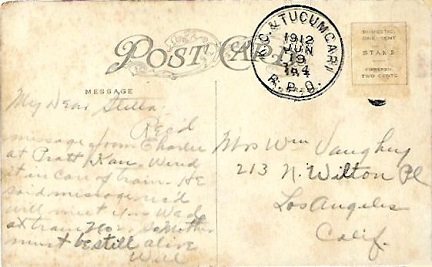 POST CARD
K.C. & TUCUMCARI
1912
JUN
19
R.P.O.
DOMESTIC
ONE CENT
STAMP
FOREIGN
TWO CENTS
MESSAGE
My Dear Stella
Rec'd
message from Charlie
at Pratt Kan. Wired
it in care of train. He
said message rec'd
will meet Mrs Wade
at train
must be still alive
Will
Mrs Wm Vaughey
213 N. Wilton Pl
Los Angeles
Calif.